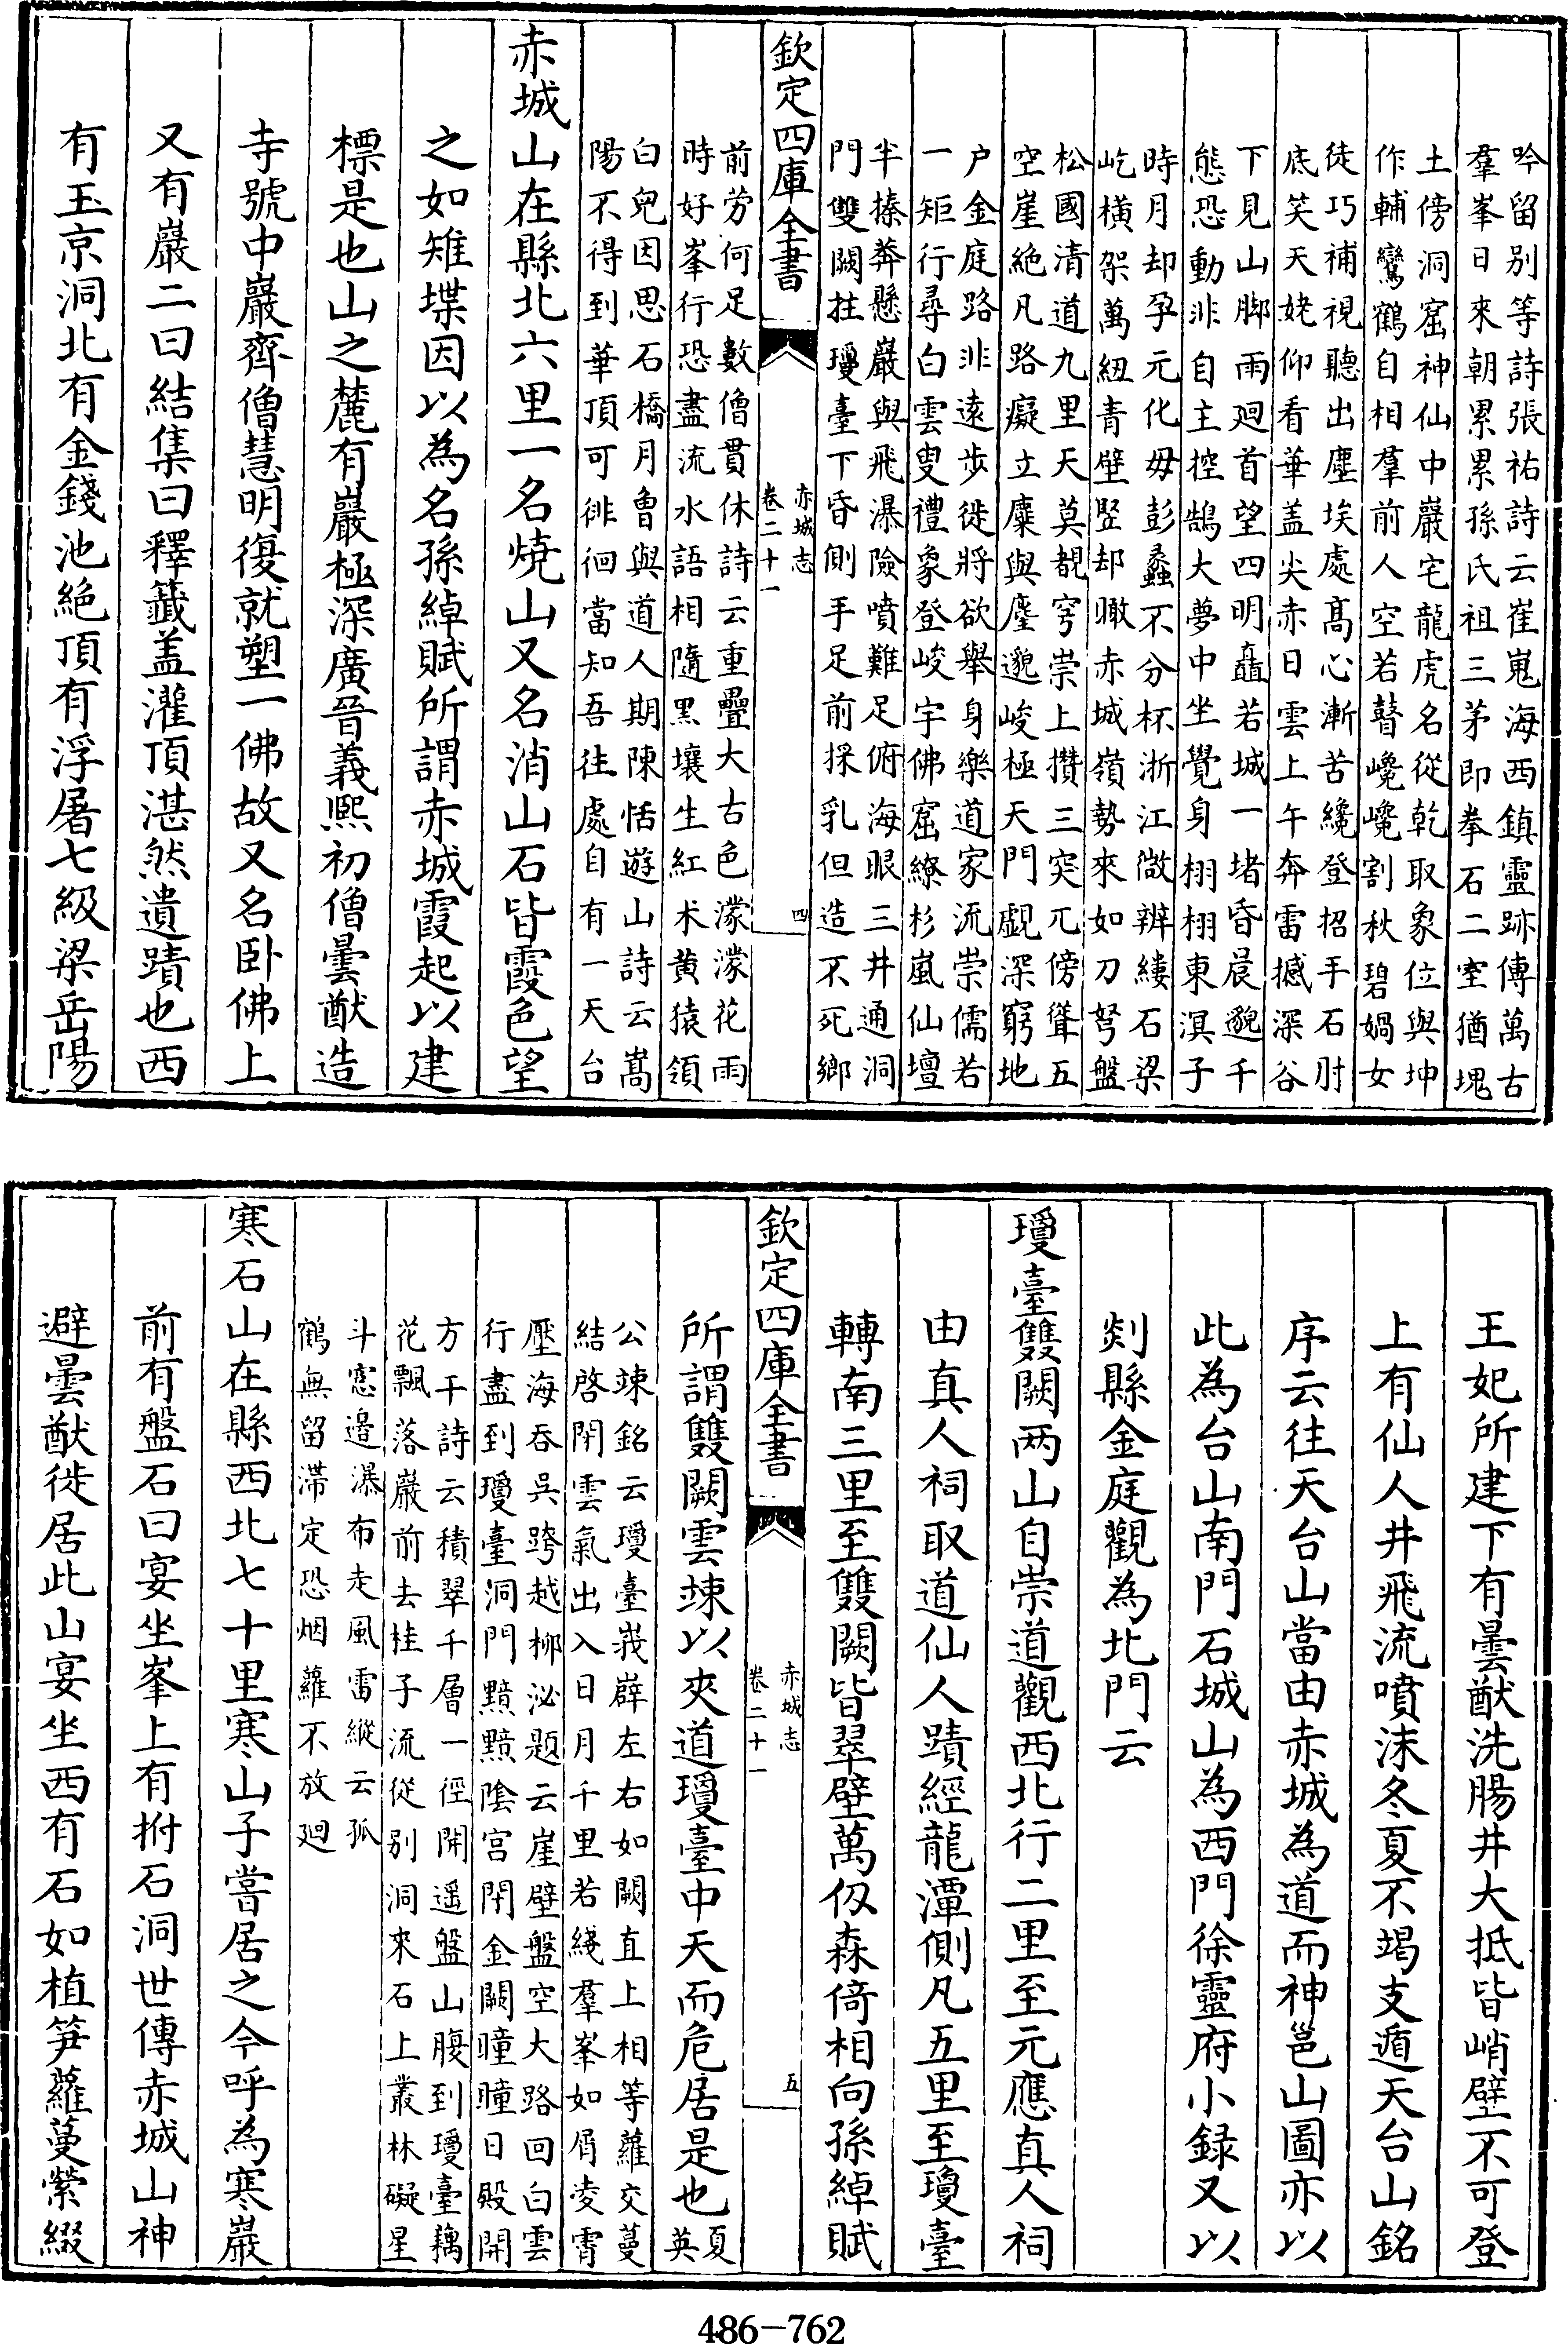 吟留别等詩張祐詩云崔嵬海西鎮靈跡傳萬古
羣峯日來朝累累孫氏祖三茅即拳石二室猶塊
土傍洞窟神仙中巖宅龍虎名從乾取象位與坤
作輔鸞鶴自相羣前人空若瞽巉巉割秋碧媧女
徒巧補視聽出塵埃處髙心漸苦纔登招手石肘
底笑天姥仰看華盖尖赤日雲上午奔雷撼深谷
下見山脚雨廻首望四明矗若城一堵昏晨邈千
態恐動非自主控鵠大夢中坐覺身栩栩東溟子
時月却孕元化毋彭蠡不分杯浙江微辨縷石梁
屹横架萬紐青壁竪却瞰赤城嶺勢來如刀弩盤
松國清道九里天莫覩穹崇上攢三突兀傍聳五
空崖絶凡路癡立麋與麈邈峻極天門覷深窮地
户金庭路非遠步徙將欲舉身樂道家流崇儒若
一矩行尋白雲叟禮象登峻宇佛窟繚杉嵐仙壇
半榛莽懸巖與飛瀑險噴難足俯海眼三井通洞
門雙闕拄瓊臺下昏側手足前採乳但造不死鄉
欽定四庫全書
赤城志
卷二十一
四
前劳何足數僧貫休詩云重疊大古色濛濛花雨
時好峯行恐盡流水語相隨黑壤生紅术黄猿領
白兒因思石橋月曽與道人期陳恬遊山詩云嵩
陽不得到華頂可徘徊當知吾往處自有一天台
赤城山在縣北六里一名燒山又名消山石皆霞色望
之如雉堞因以為名孫綽賦所謂赤城霞起以建
標是也山之麓有巖極深廣晉義熙初僧曇猷造
寺號中巖齊僧慧明復就塑一佛故又名卧佛上
又有巖二曰結集曰釋籖盖灌頂湛然遺蹟也西
有玉京洞北有金錢池絶頂有浮屠七級梁岳陽
王妃所建下有曇猷洗腸井大抵皆峭壁不可登
上有仙人井飛流噴沫冬夏不竭支遁天台山銘
序云往天台山當由赤城為道而神邕山圖亦以
此為台山南門石城山為西門徐靈府小録又以
剡縣金庭觀為北門云
瓊臺雙闕两山自崇道觀西北行二里至元應真人祠
由真人祠取道仙人蹟經龍潭側凡五里至瓊臺
轉南三里至雙闕皆翠壁萬仭森倚相向孫綽賦
欽定四庫全書
赤城志
卷二十一
五
所謂雙闕雲竦以夾道瓊臺中天而危居是也夏
英
公竦銘云瓊臺峩辟左右如闕直上相等蘿交蔓
結啓閉雲氣出入日月千里若綫羣峯如屑凌霄
壓海吞呉跨越柳泌題云崖壁盤空大路回白雲
行盡到瓊臺洞門黯黯陰宫閉金闕曈曈日殿開
方干詩云積翠千層一徑開遥盤山腰到瓊臺藕
花飄落巖前去桂子流從别洞來石上叢林礙星
斗窓邉瀑布走風雷縱云孤
鶴無留滯定恐烟蘿不放廻
寒石山在縣西北七十里寒山子嘗居之今呼為寒巖
前有盤石曰宴坐峯上有拊石洞世傳赤城山神
避曇猷徙居此山宴坐西有石如植笋蘿蔓縈綴
486-762